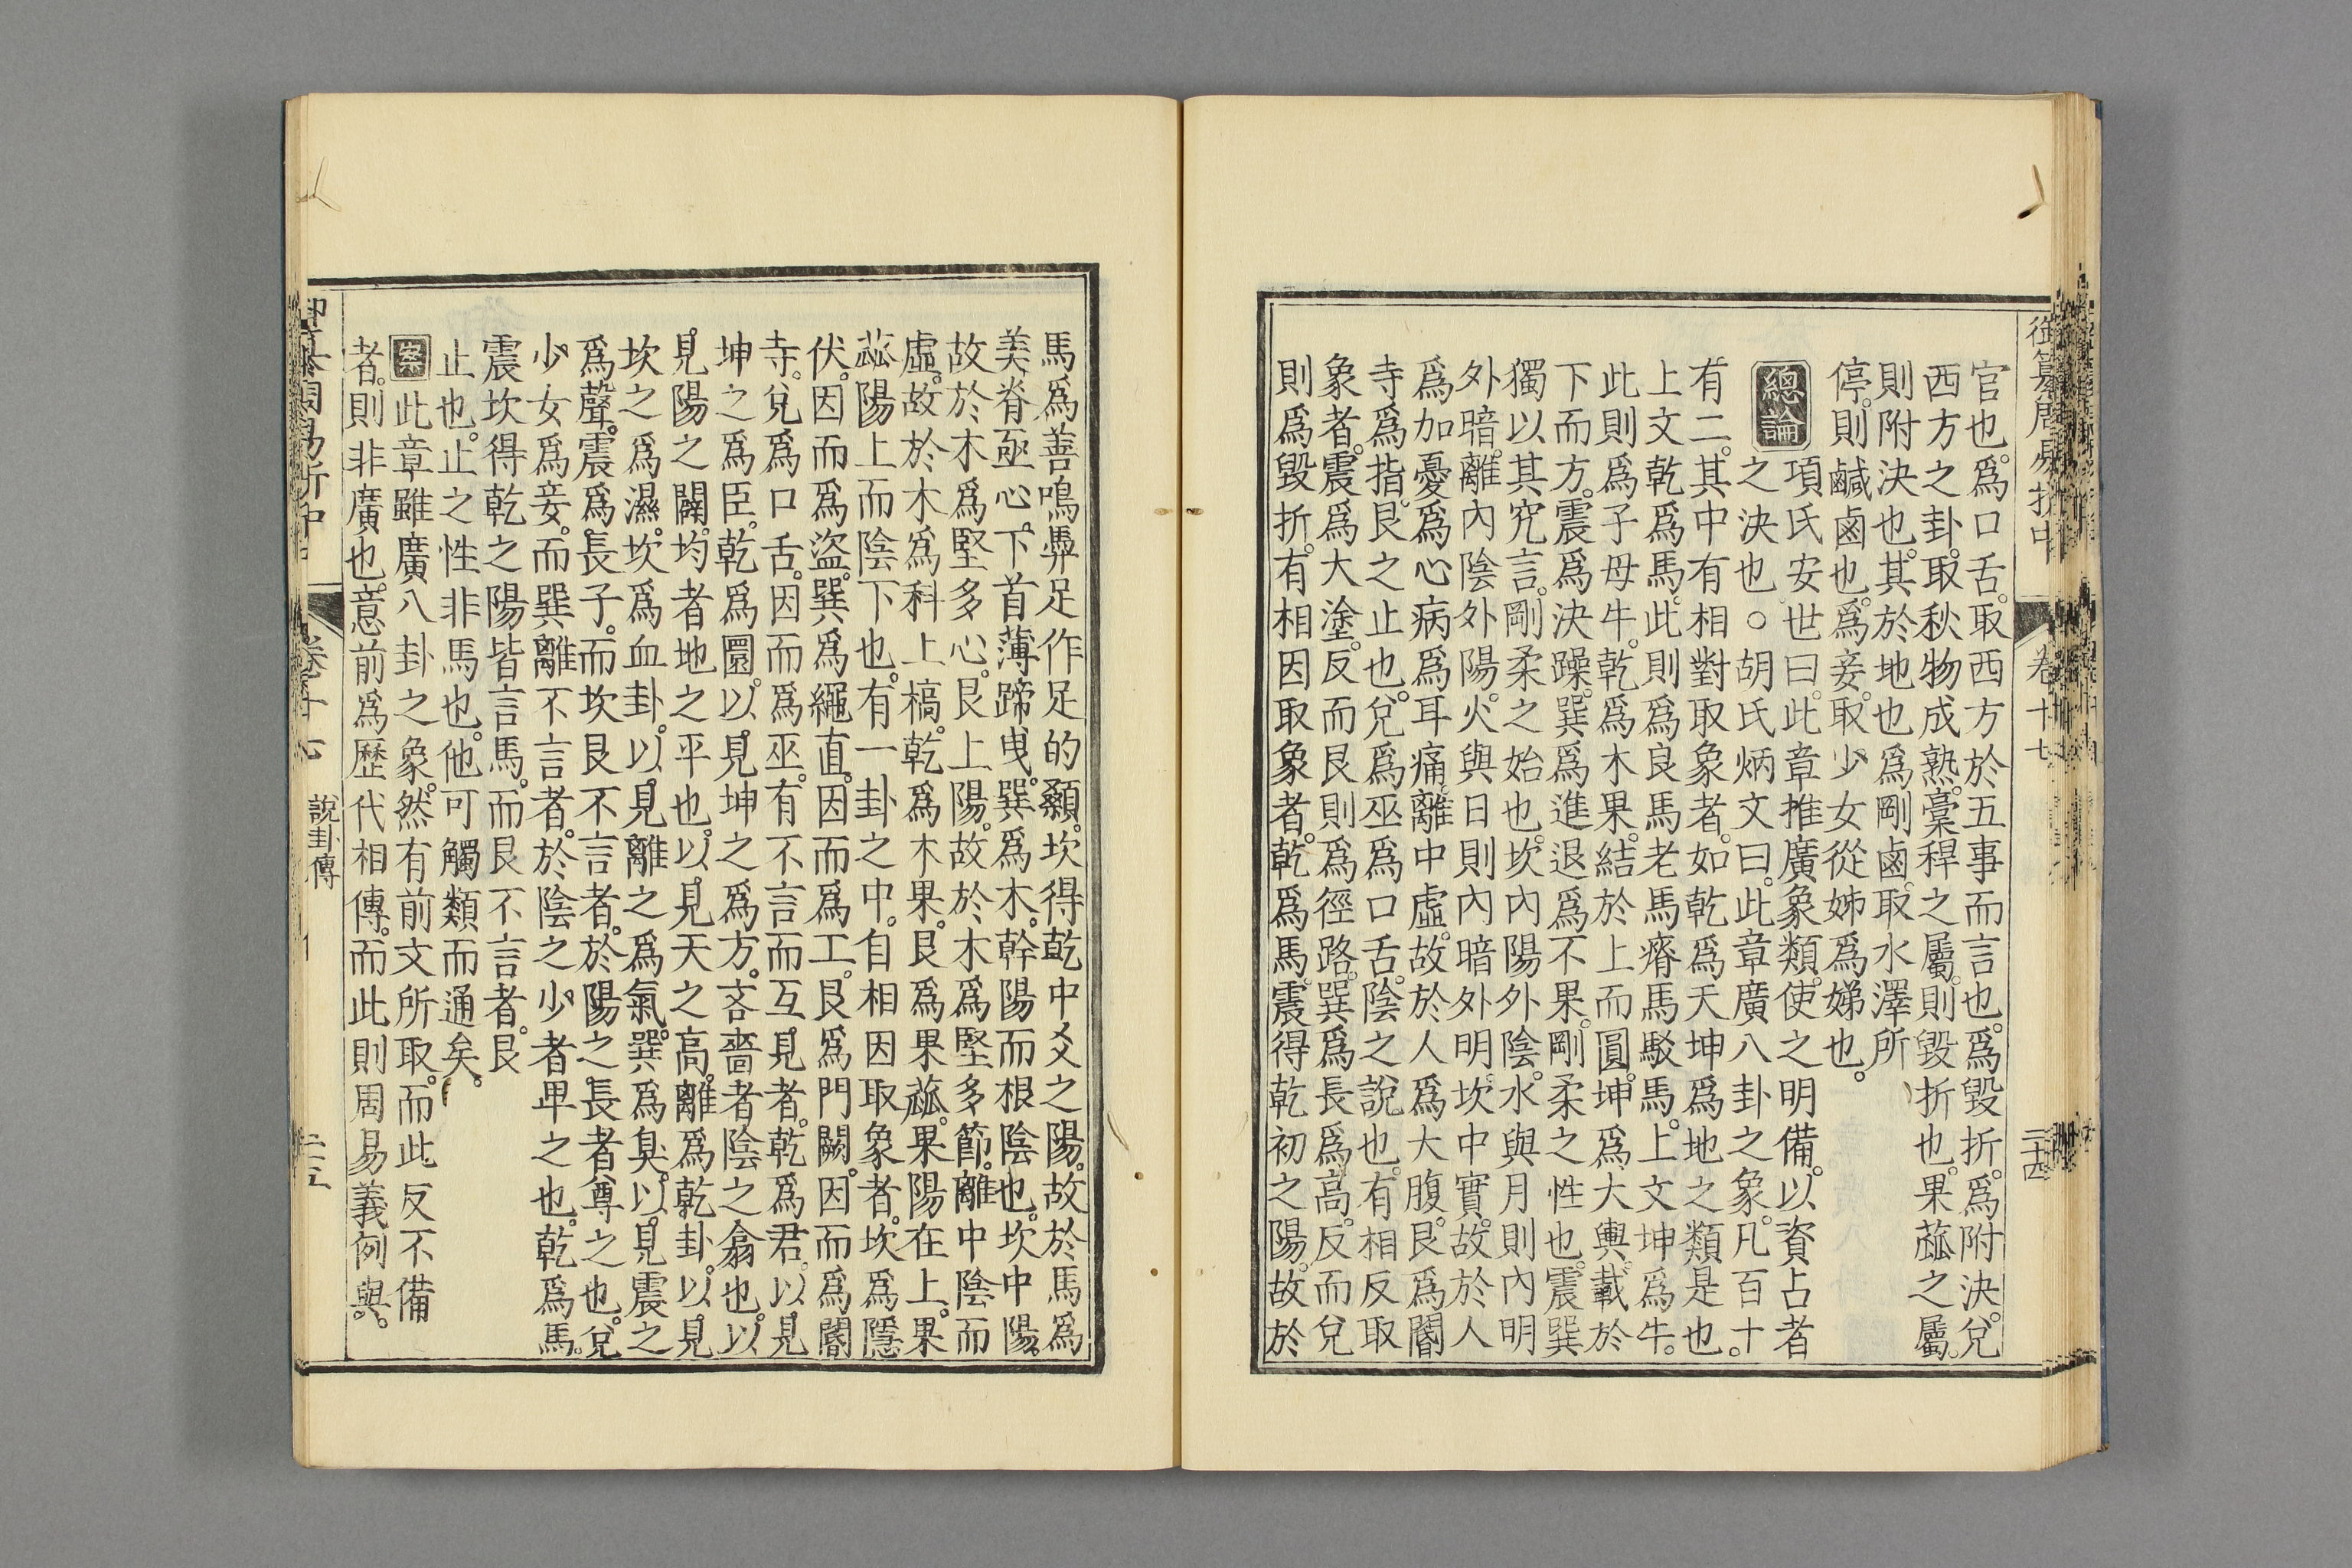 御纂周易折中 卷十七 二十四
官也。爲口舌。取西方於五事而言也。爲毀折。爲附決。兌
西方之卦。取秋物成熟。稾稈之屬。則毀折也。果蓏之屬。
則附決也。其於地也爲剛鹵。取水澤所
停。則鹹鹵也。爲妾。取少女從姊爲娣也。
總論
項氏安世曰。此章推廣象類。使之明備。以資占者
之決也。○胡氏炳文曰。此章廣八卦之象。凡百十
有二。其中有相對取象者。如乾爲天坤爲地之類是也。
上文乾爲馬。此則爲良馬老馬瘠馬駁馬。上文坤爲牛。
此則爲子母牛。乾爲木果。結於上而圓。坤爲大輿。載於
下而方。震爲決躁。巽爲進退爲不果。剛柔之性也。震巽
獨以其究言。剛柔之始也。坎內陽外陰。水與月則內明
外暗。離內陰外陽。火與日則內暗外明。坎中實。故於人
爲加憂爲心病爲耳痛。離中虛。故於人爲大腹。艮爲閽
寺爲指。艮之止也。兌爲巫爲口舌。陰之說也。有相反取
象者。震爲大塗。反而艮則爲徑路。巽爲長爲高。反而兌
則爲毀折。有相因取象者。乾爲馬。震得乾初之陽。故於
馬爲善鳴馵足作足的顙。坎得乾中爻之陽。故於馬爲
美脊亟心。下首薄蹄曳。巽爲木。幹陽而根陰也。坎中陽。
故於木爲堅多心。艮上陽。故於木爲堅多節。離中陰而
虛。故於木爲科上槁。乾爲木果。艮爲果蓏。果陽在上。果
蓏陽上而陰下也。有一卦之中。自相因取象者。坎爲隱
伏。因而爲盜。巽爲繩直。因而爲工。艮爲門闕。因而爲閽
寺。兌爲口舌。因而爲巫。有不言而互見者。乾爲君。以見
坤之爲臣。乾爲圜。以見坤之爲方。吝嗇者陰之翕也。以
見陽之闢。均者地之平也。以見天之高。離爲乾卦。以見
坎之爲濕。坎爲血卦。以見離之爲氣。巽爲臭。以見震之
爲聲。震爲長子。而坎艮不言者。於陽之長者尊之也。兌
少女爲妾。而巽離不言者。於陰之少者卑之也。乾爲馬。
震坎得乾之陽皆言馬。而艮不言者。艮
止也。止之性非馬也。他可觸類而通矣。
案此章雖廣八卦之象。然有前文所取。而此反不備
者。則非廣也。意前爲歷代相傳。而此則周易義例與。
周易折中 卷十七 說卦傳 二十五